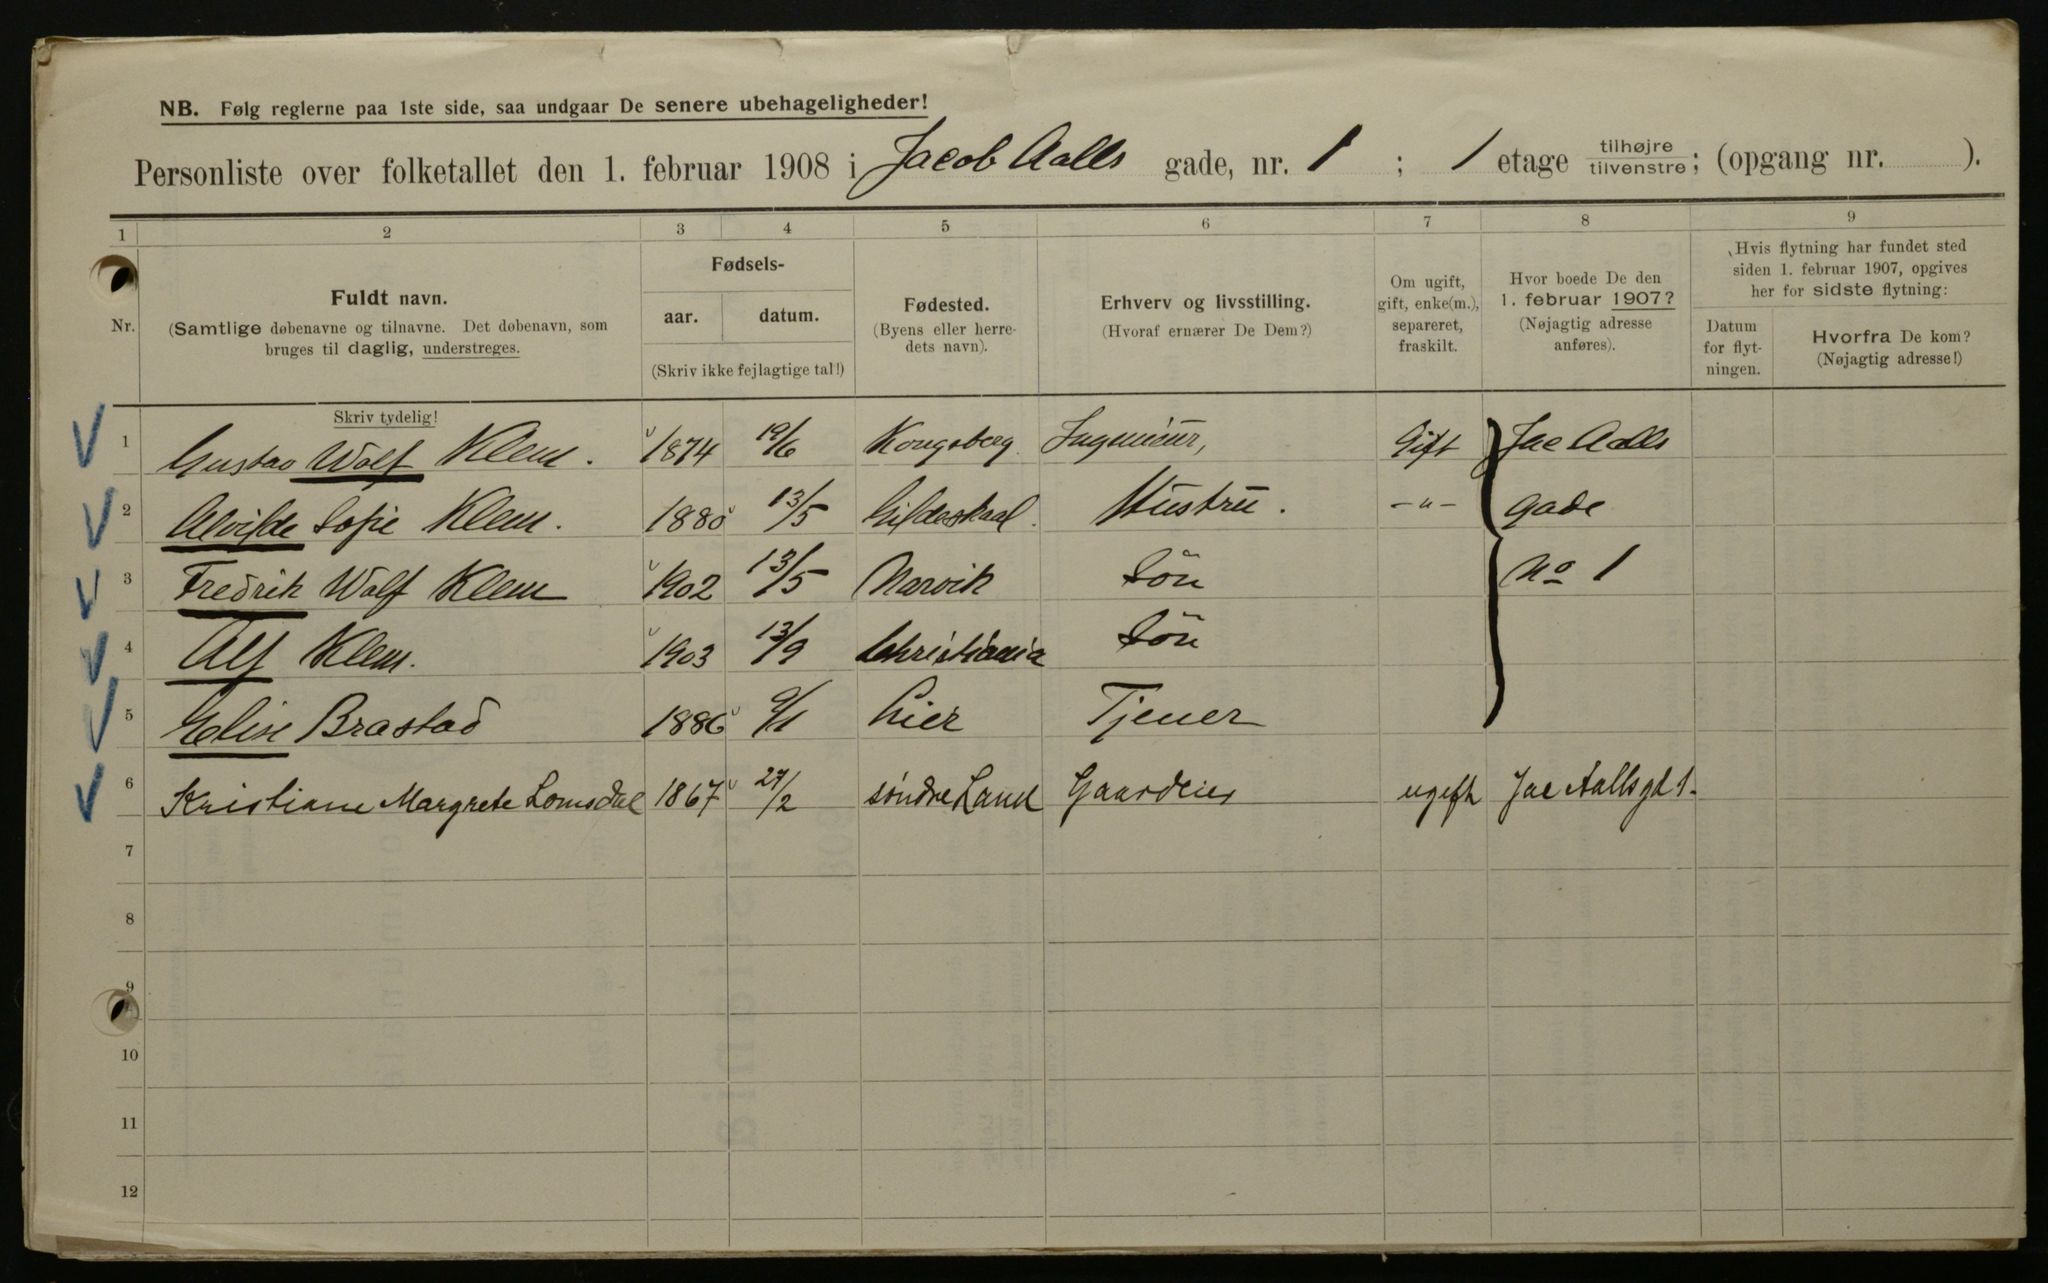 NB. Følg reglerne paa 1ste side, saa undgaar De senere ubehageligheder!
Personliste over folketallet den 1. februar 1908 i Jacob Aalls gade, nr. 1 ; 1 etage tilhøjre tilvenstre; (opgang nr. ).
1 2 3 4 5 6 7 8 9
Nr.
Fuldt navn.
(Samtlige døbenavne og tilnavne. Det døbenavn, som
bruges til daglig, understreges.
Skriv tydelig!
Fødsels-
aar. datum.
(Skriv ikke fejlagtige tal!)
Fødested.
(Byens eller herre-
dets navn).
Erhverv og livsstilling.
(Hvoraf ernærer De Dem?)
Om ugift,
gift, enke(m.),
separeret,
fraskilt.
Hvor boede De den
1. februar 1907?
(Nøjagtig adresse
anføres).
Hvis flytning har fundet sted
siden 1. februar 1907, opgives
her for sidste flytning:
Datum
for flyt-
ningen.
Hvorfra De kom?
(Nøjagtig adresse!)
1 Gustav Wolf Klem. 1874 19/6 Kongsberg Ingeniør, Gift Jac Aalls
2 Alvilde Sofie Klem. 1880 13/5 Gildeskaal. Hustru. -"- gade
3 Fredrik Wolf Klem 1902 13/5 Narvik Sön No 1
4 Alf Klem. 1903 13/9 Christiania Sön
5 Elise Brastad 1886 9/1 Lier Tjener
6 Kristiane Margrete Lomsdal 1867 27/2 søndre Land Gaardeier ugift Jac Aallsgd 1.
7
8
9
10
11
12